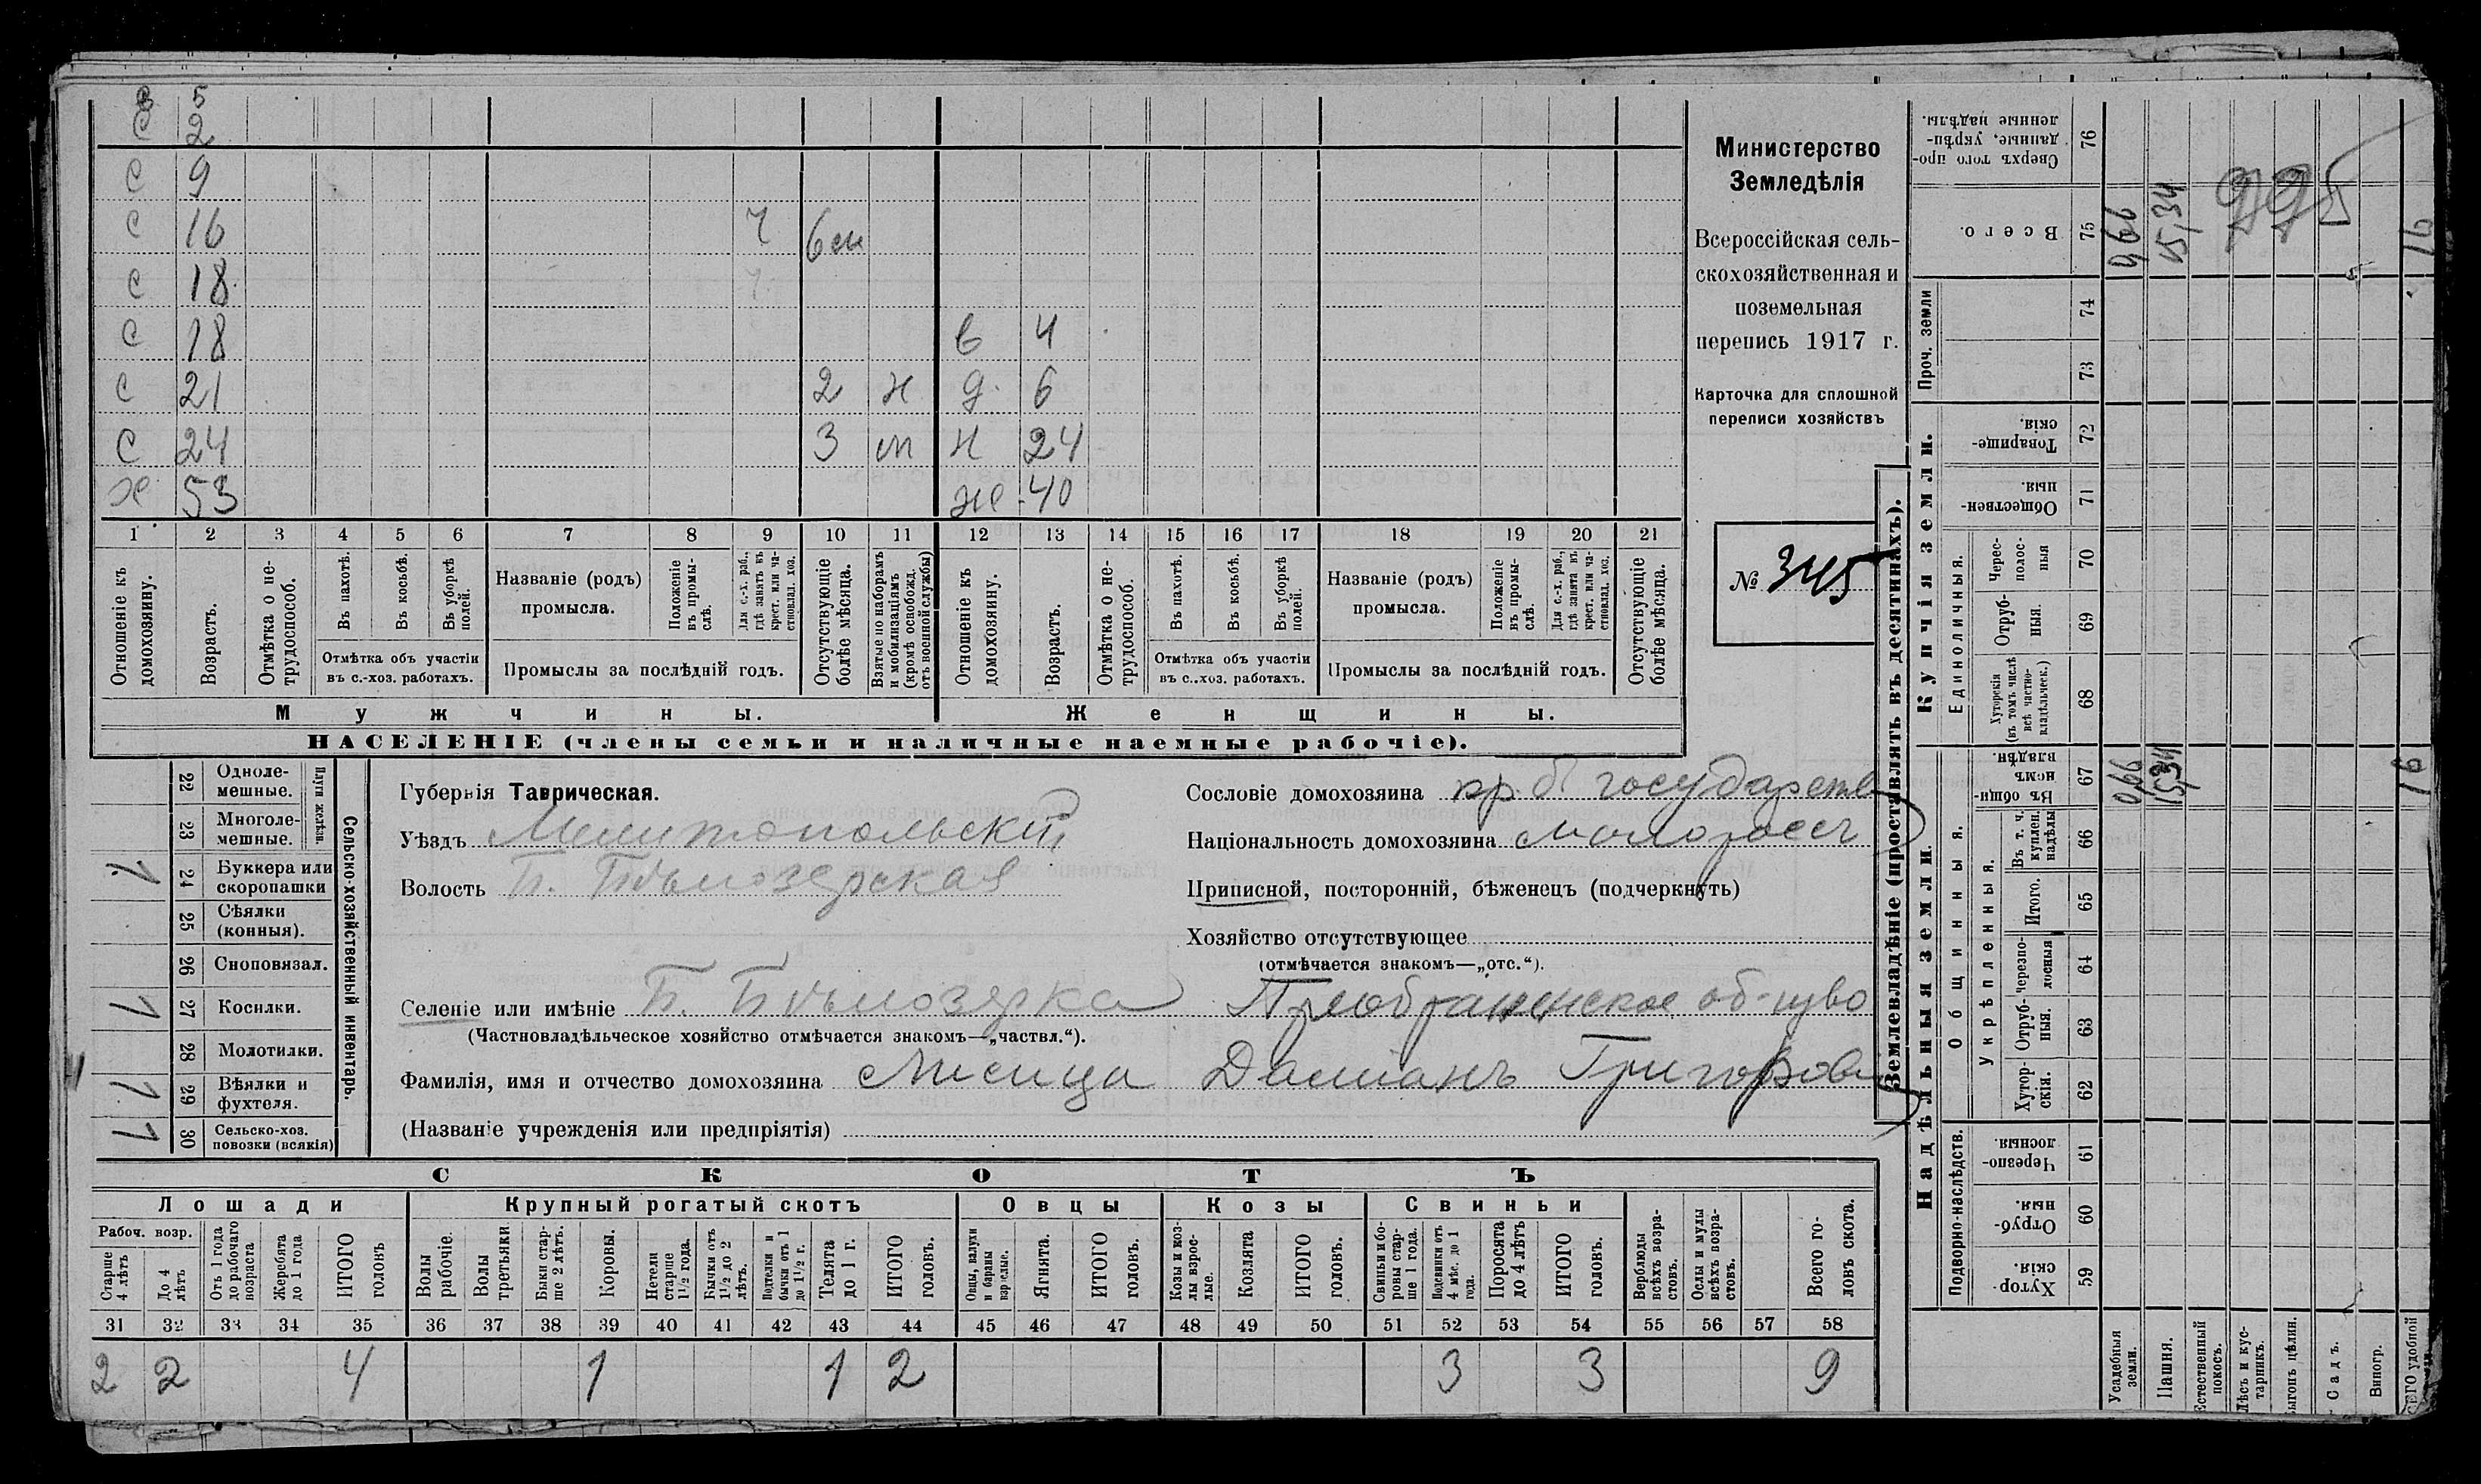 в 5
с 2
с 9
с 16 ч 6 м
с 18 ч
с 18 в 4
с 21 2 н д 6
с 24 3 м н 24
х 53 ж 40
1 2 3 4 5 6 7 8 9 10 11 12 13 14 15 16 17 18 19 20 21
Отношеніе къ домохозяину.
Возрастъ.
Отмѣтка о нетрудоспособ.
Въ пахотѣ.
Въ косьбѣ.
Въ уборкѣ полей.
Отмѣтка объ участіи
въ с.-хоз. работахъ.
Названіе (родъ)
промысла.
Положеніе въ промыслѣ.
Для с.-х. раб., гдѣ занятъ въ крест. или частновлад. хоз.
Промыслы за послѣдній годъ.
Отсутствующіе болѣе мѣсяца.
Взятые по наборамъ и мобилизаціямъ (кромѣ освобожд. отъ военной службы)
Отношеніе къ домохозяину.
Возрастъ.
Отмѣтка о нетрудоспособ.
Въ пахотѣ.
Въ косьбѣ.
Въ уборкѣ полей.
Отмѣтка объ участіи
въ с..хоз. работахъ.
Названіе (родъ)
промысла.
Положеніе въ промыслѣ.
Для с.-х. раб., гдѣ занята въ крест. или частновлад. хоз.
Промыслы за послѣдній годъ.
Отсутствующіе болѣе мѣсяца.
Мужчины.
Женщины.
НАСЕЛЕНІЕ (члены семьи и наличные наемные рабочіе).
Министерство
Земледѣлія
Всероссійская сель-
скохозяйственная и
поземельная
перепись 1917 г.
Карточка для сплошной
переписи хозяйствъ
№ 345
22 Одноле-
мешные.
23 Многоле-
мешные.
Плуги желѣзн.
1 24 Буккера или
скоропашки
25 Сѣялки
(конныя).
26 Сноповязал.
1 27 Косилки.
28 Молотилки.
1 29 Вѣялки и
фухтеля.
1 30 Сельско-хоз.
повозки (всякія)
Сельско-хозяйственный инвентарь.
Губернія Таврическая.
Уѣздъ Мелитопольскій
Волость Б. Бѣлозерская
Сословіе домохозяина кр. б. государств
Національность домохозяина малоросс
Приписной, посторонній, бѣженецъ (подчеркнуть)
Хозяйство отсутствующее
(отмѣчается знакомъ—„отс.“).
Селеніе или имѣніе Б. Бѣлозерка Преображенское об-щво
(Частновладѣльческое хозяйство отмѣчается знакомъ—„частвл.“).
Фамилія, имя и отчество домохозяина Лисица Даміанъ Григоров
(Названіе учрежденія или предпріятія)
СКОТЪ
Лошади Крупный рогатый скотъ Овцы Козы Свиньи
Рабоч. возр.
Старше 4 лѣтъ
До 4 лѣтъ
Отъ 1 года до рабочаго возраста
Жеребята до 1 года
ИТОГО головъ
Волы рабочіе.
Волы третьяки
Быки старше 2 лѣтъ.
Коровы.
Нетели старше 1½ года.
Бычки отъ 1½ до 2 лѣтъ.
Подтелки и бычки отъ 1 до 1½ г.
Телята до 1 г.
ИТОГО головъ.
Овцы, валухи и бараны взрослые.
Ягнята.
ИТОГО головъ.
Козы и козлы взрослые.
Козлята
ИТОГО головъ.
Свиньи и боровы старше 1 года.
Подсвинки отъ 4 мѣс. до 1 года.
Поросята до 4 лѣтъ
ИТОГО головъ.
Верблюды всѣхъ возрастовъ.
Ослы и мулы всѣхъ возрастовъ.
Всего головъ скота.
31 32 33 34 35 36 37 38 39 40 41 42 43 44 45 46 47 48 49 50 51 52 53 54 55 56 57 58
2 2 4 1 1 2 3 3 9
Землевладѣніе (проставлять въ десятинахъ).
Надѣльныя земли. Купчія земли.
Проч. земли
Подворно-наслѣдств.
Общинныя.
Укрѣпленныя.
Единоличныя.
Сверхъ того проданные, укрѣпленные надѣлы. 76
Всего. 75 0,66 15,34 16
74
73
Товарищескія. 72
Общественныя. 71
Чересполосныя 70
Отрубныя. 69
Хуторскія (въ томъ числѣ всѣ частновладѣльческ.) 68
Въ общинномъ владѣн. 67 0,66 15,34 16
Въ т. ч. куплен. надѣлы 66
Итого. 65
Черезполосныя 64
Отрубныя. 63
Хуторскія. 62
Черезполосныя. 61
Отрубныя. 60
Хуторскія. 59
Усадебныя земли.
Пашня.
Естественный покосъ.
Лѣсъ и кустарникъ.
Выгонъ цѣлин.
Садъ.
Виногр.